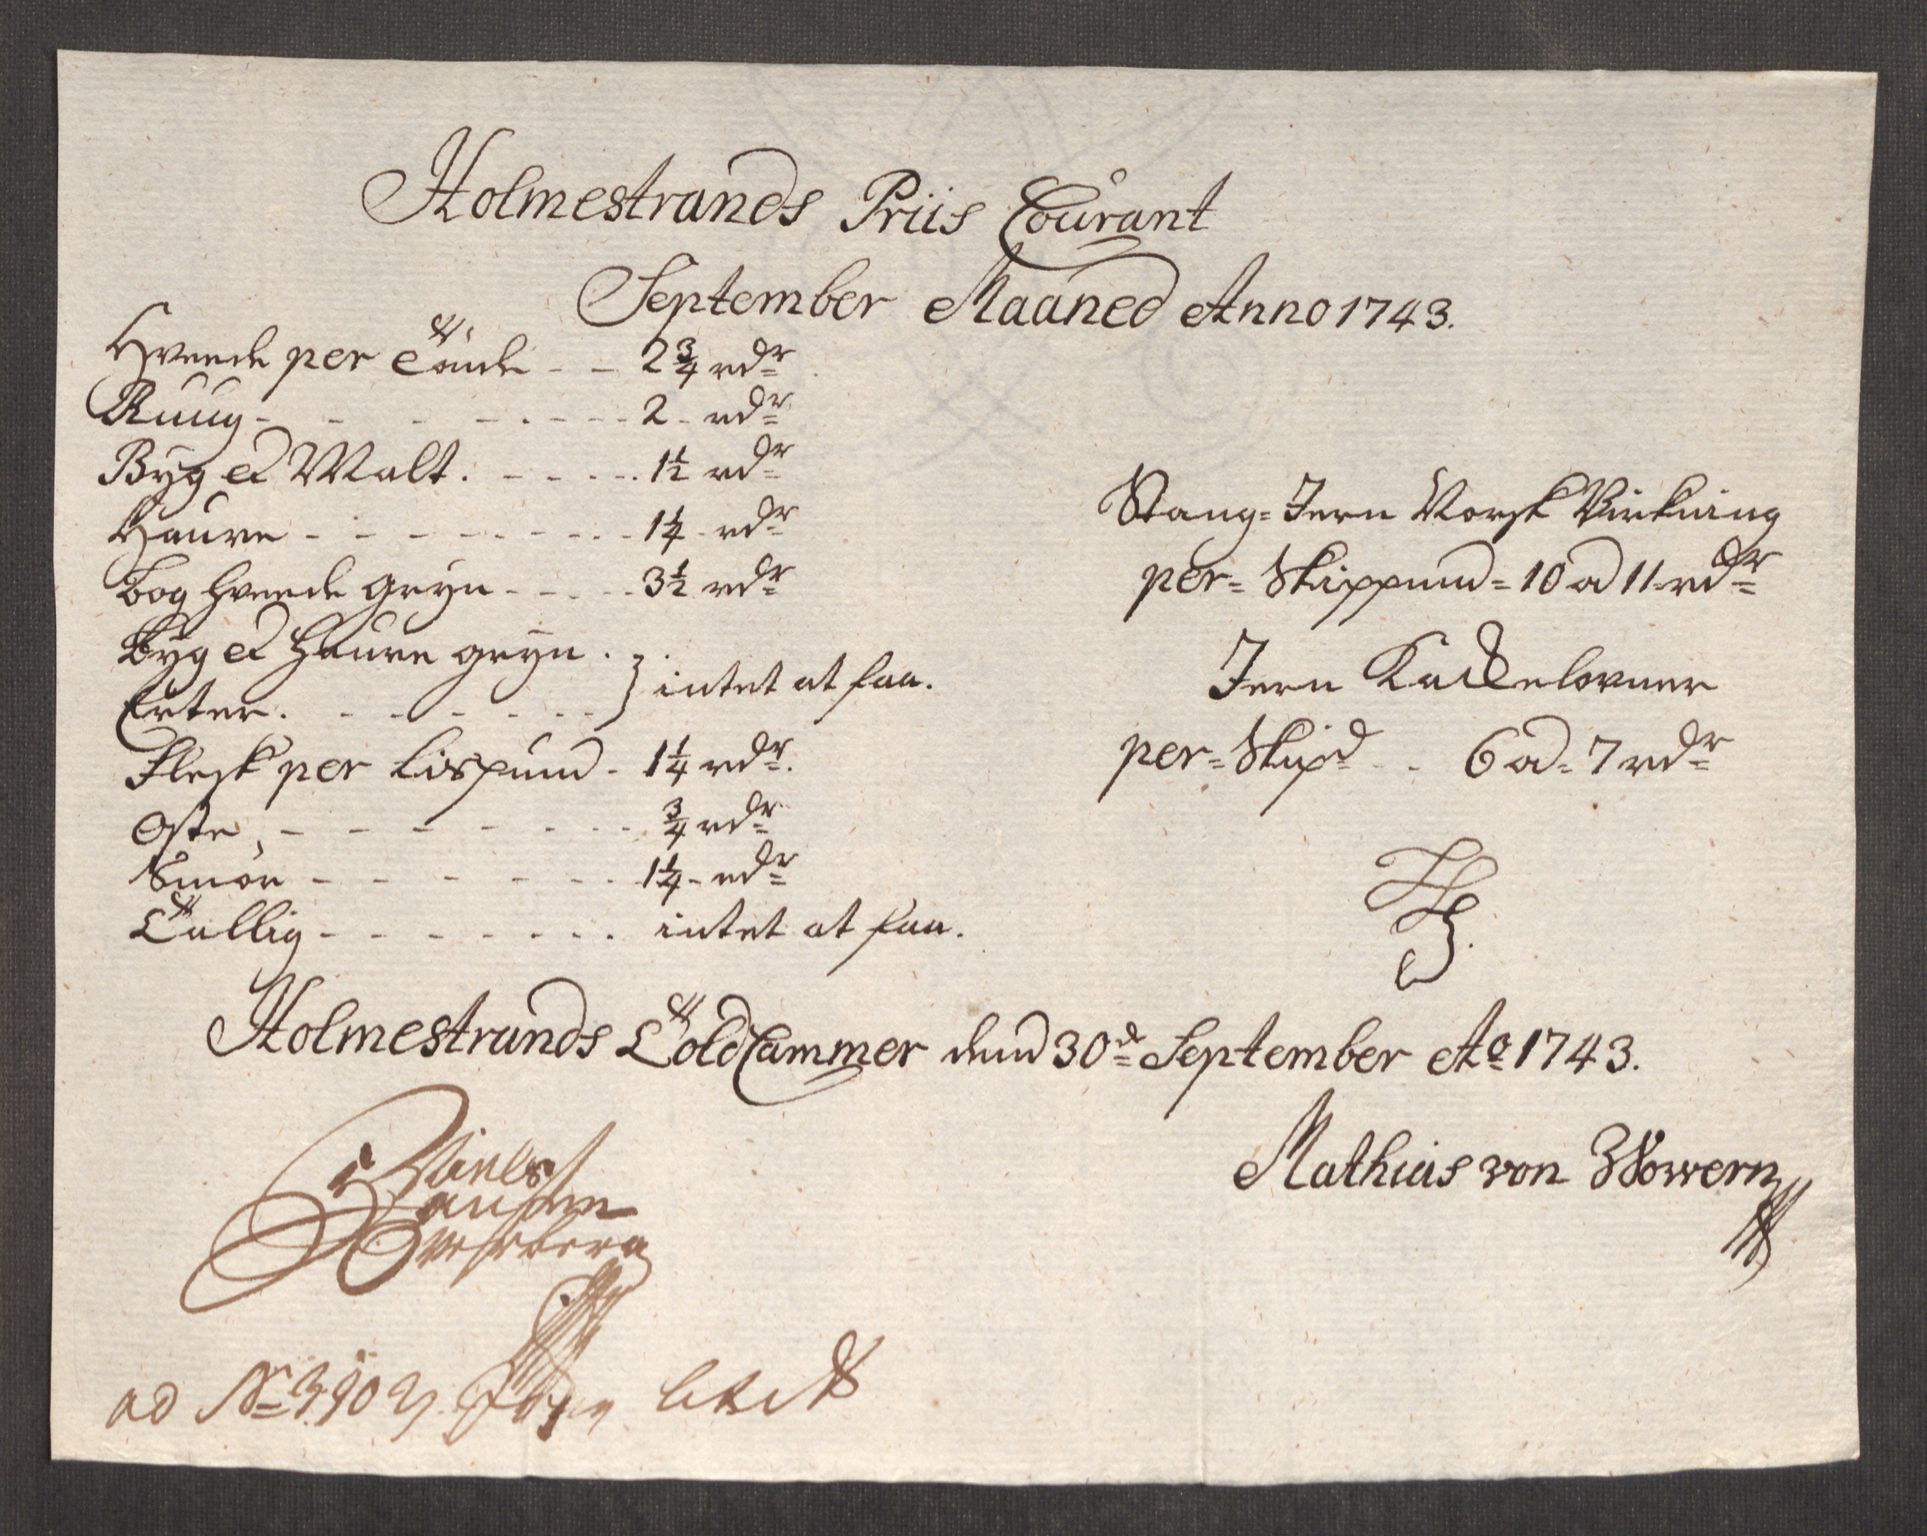 Holmestrands Priis Courant
September Maaned Anno 1743.
Hveede per Tönde - - 2 3/4 rdr
Ruug - - - - - - 2 - rdr
Byg et Malt. - - - - 1 1/2 rdr
Haure - - - - - - - 1 1/4 - rdr
Bog hveede gryn - - - - 3 1/2 rdr
Byg et Haure gryn .
Erter. - - - - - - } intet at faa.
Flesk per Lispund - 1 1/4 rdr.
Oste - - - - - - - 3/4 rdr
Smör - - - - - - 1 1/4 - rdr
Tallig - - - - - - - intet at faa.
Stang-Jern Norsk Virkning
per Skippund = 10 a 11 rdr
Jern Kackelovner
per Skipd - - 6 a 7 rdr
Holmestrands Told Cammer dend 30d September Ao 1743.
Niels
Hansen
Mathias von Wowern
ad No